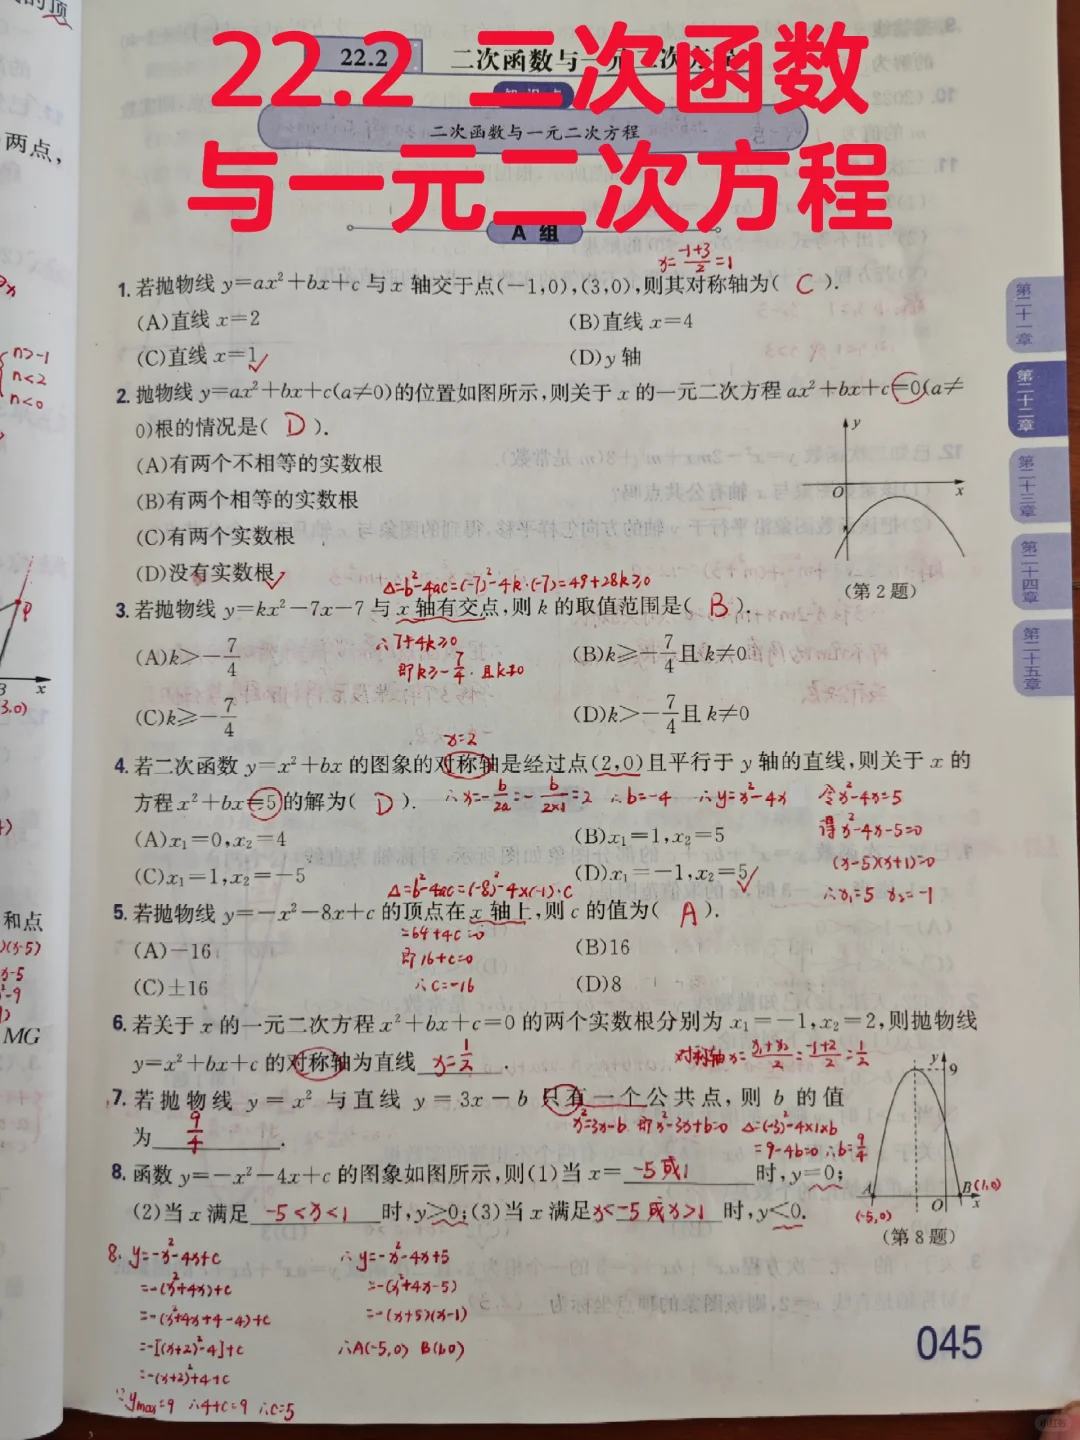 22.2 二次函数
与一元二次方程
22.2 二次函数与一元二次方程
知识点
二次函数与一元二次方程
A 组
x=\frac{-1+3}{2}=1
1. 若抛物线 y=ax²+bx+c 与 x 轴交于点(-1,0),(3,0),则其对称轴为( C ).
(A)直线 x=2 (B)直线 x=4
(C)直线 x=1 (D)y 轴
2. 抛物线 y=ax²+bx+c(a≠0)的位置如图所示,则关于 x 的一元二次方程 ax²+bx+c=0(a≠
0)根的情况是( D ).
(A)有两个不相等的实数根
(B)有两个相等的实数根
(C)有两个实数根
(D)没有实数根
y
O
x
(第 2 题)
Δ=b²-4ac=(-7)²-4k·(-7)=49+28k≥0
3. 若抛物线 y=kx²-7x-7 与 x 轴有交点,则 k 的取值范围是( B ).
∴7+4k≥0
即k≥-\frac{7}{4}.且k≠0
(A)k>-\frac{7}{4} (B)k≥-\frac{7}{4}且 k≠0
(C)k≥-\frac{7}{4} (D)k>-\frac{7}{4}且 k≠0
x=2
4. 若二次函数 y=x²+bx 的图象的对称轴是经过点(2,0)且平行于 y 轴的直线,则关于 x 的
方程 x²+bx=5 的解为( D ).
∴x=-\frac{b}{2a}=-\frac{b}{2×1}=2 ∴b=-4 ∴y=x²-4x 令x²-4x=5
得x²-4x-5=0
(x-5)(x+1)=0
∴x₁=5 x₂=-1
(A)x₁=0,x₂=4 (B)x₁=1,x₂=5
(C)x₁=1,x₂=-5 (D)x₁=-1,x₂=5
Δ=b²-4ac=(-8)²-4×(-1)·c
5. 若抛物线 y=-x²-8x+c 的顶点在 x 轴上,则 c 的值为( A ).
=64+4c=0
即16+c=0
∴c=-16
(A)-16 (B)16
(C)±16 (D)8
6. 若关于 x 的一元二次方程 x²+bx+c=0 的两个实数根分别为 x₁=-1,x₂=2,则抛物线
y=x²+bx+c 的对称轴为直线 x=\frac{1}{2} .
对称轴x=\frac{x₁+x₂}{2}=\frac{-1+2}{2}=\frac{1}{2}
7. 若抛物线 y=x² 与直线 y=3x-b 只有一个公共点,则 b 的值
为 \frac{9}{4} .
x²=3x-b 即x²-3x+b=0 Δ=(-3)²-4×1×b
=9-4b=0 ∴b=\frac{9}{4}
8. 函数 y=-x²-4x+c 的图象如图所示,则(1)当 x= -5或1 时,y=0;
(2)当 x 满足 -5<x<1 时,y>0;(3)当 x 满足 x<-5或x>1 时,y<0.
y
9
A
(-5,0)
O
B(1,0)
x
(第 8 题)
8. y=-x²-4x+c
=-(x²+4x)+c
=-(x²+4x+4-4)+c
=-[(x+2)²-4]+c
=-(x+2)²+4+c
∵ymax=9 ∴4+c=9 ∴c=5
∴y=-x²-4x+5
=-(x²+4x-5)
=-(x+5)(x-1)
∴A(-5,0) B(1,0)
045
第二十一章
第二十二章
第二十三章
第二十四章
第二十五章
的顶
两点,
n>-1
n<2
n<0
P
B
x
3,0)
和点
)(x-5)
x-5
²-9
MG
小红书